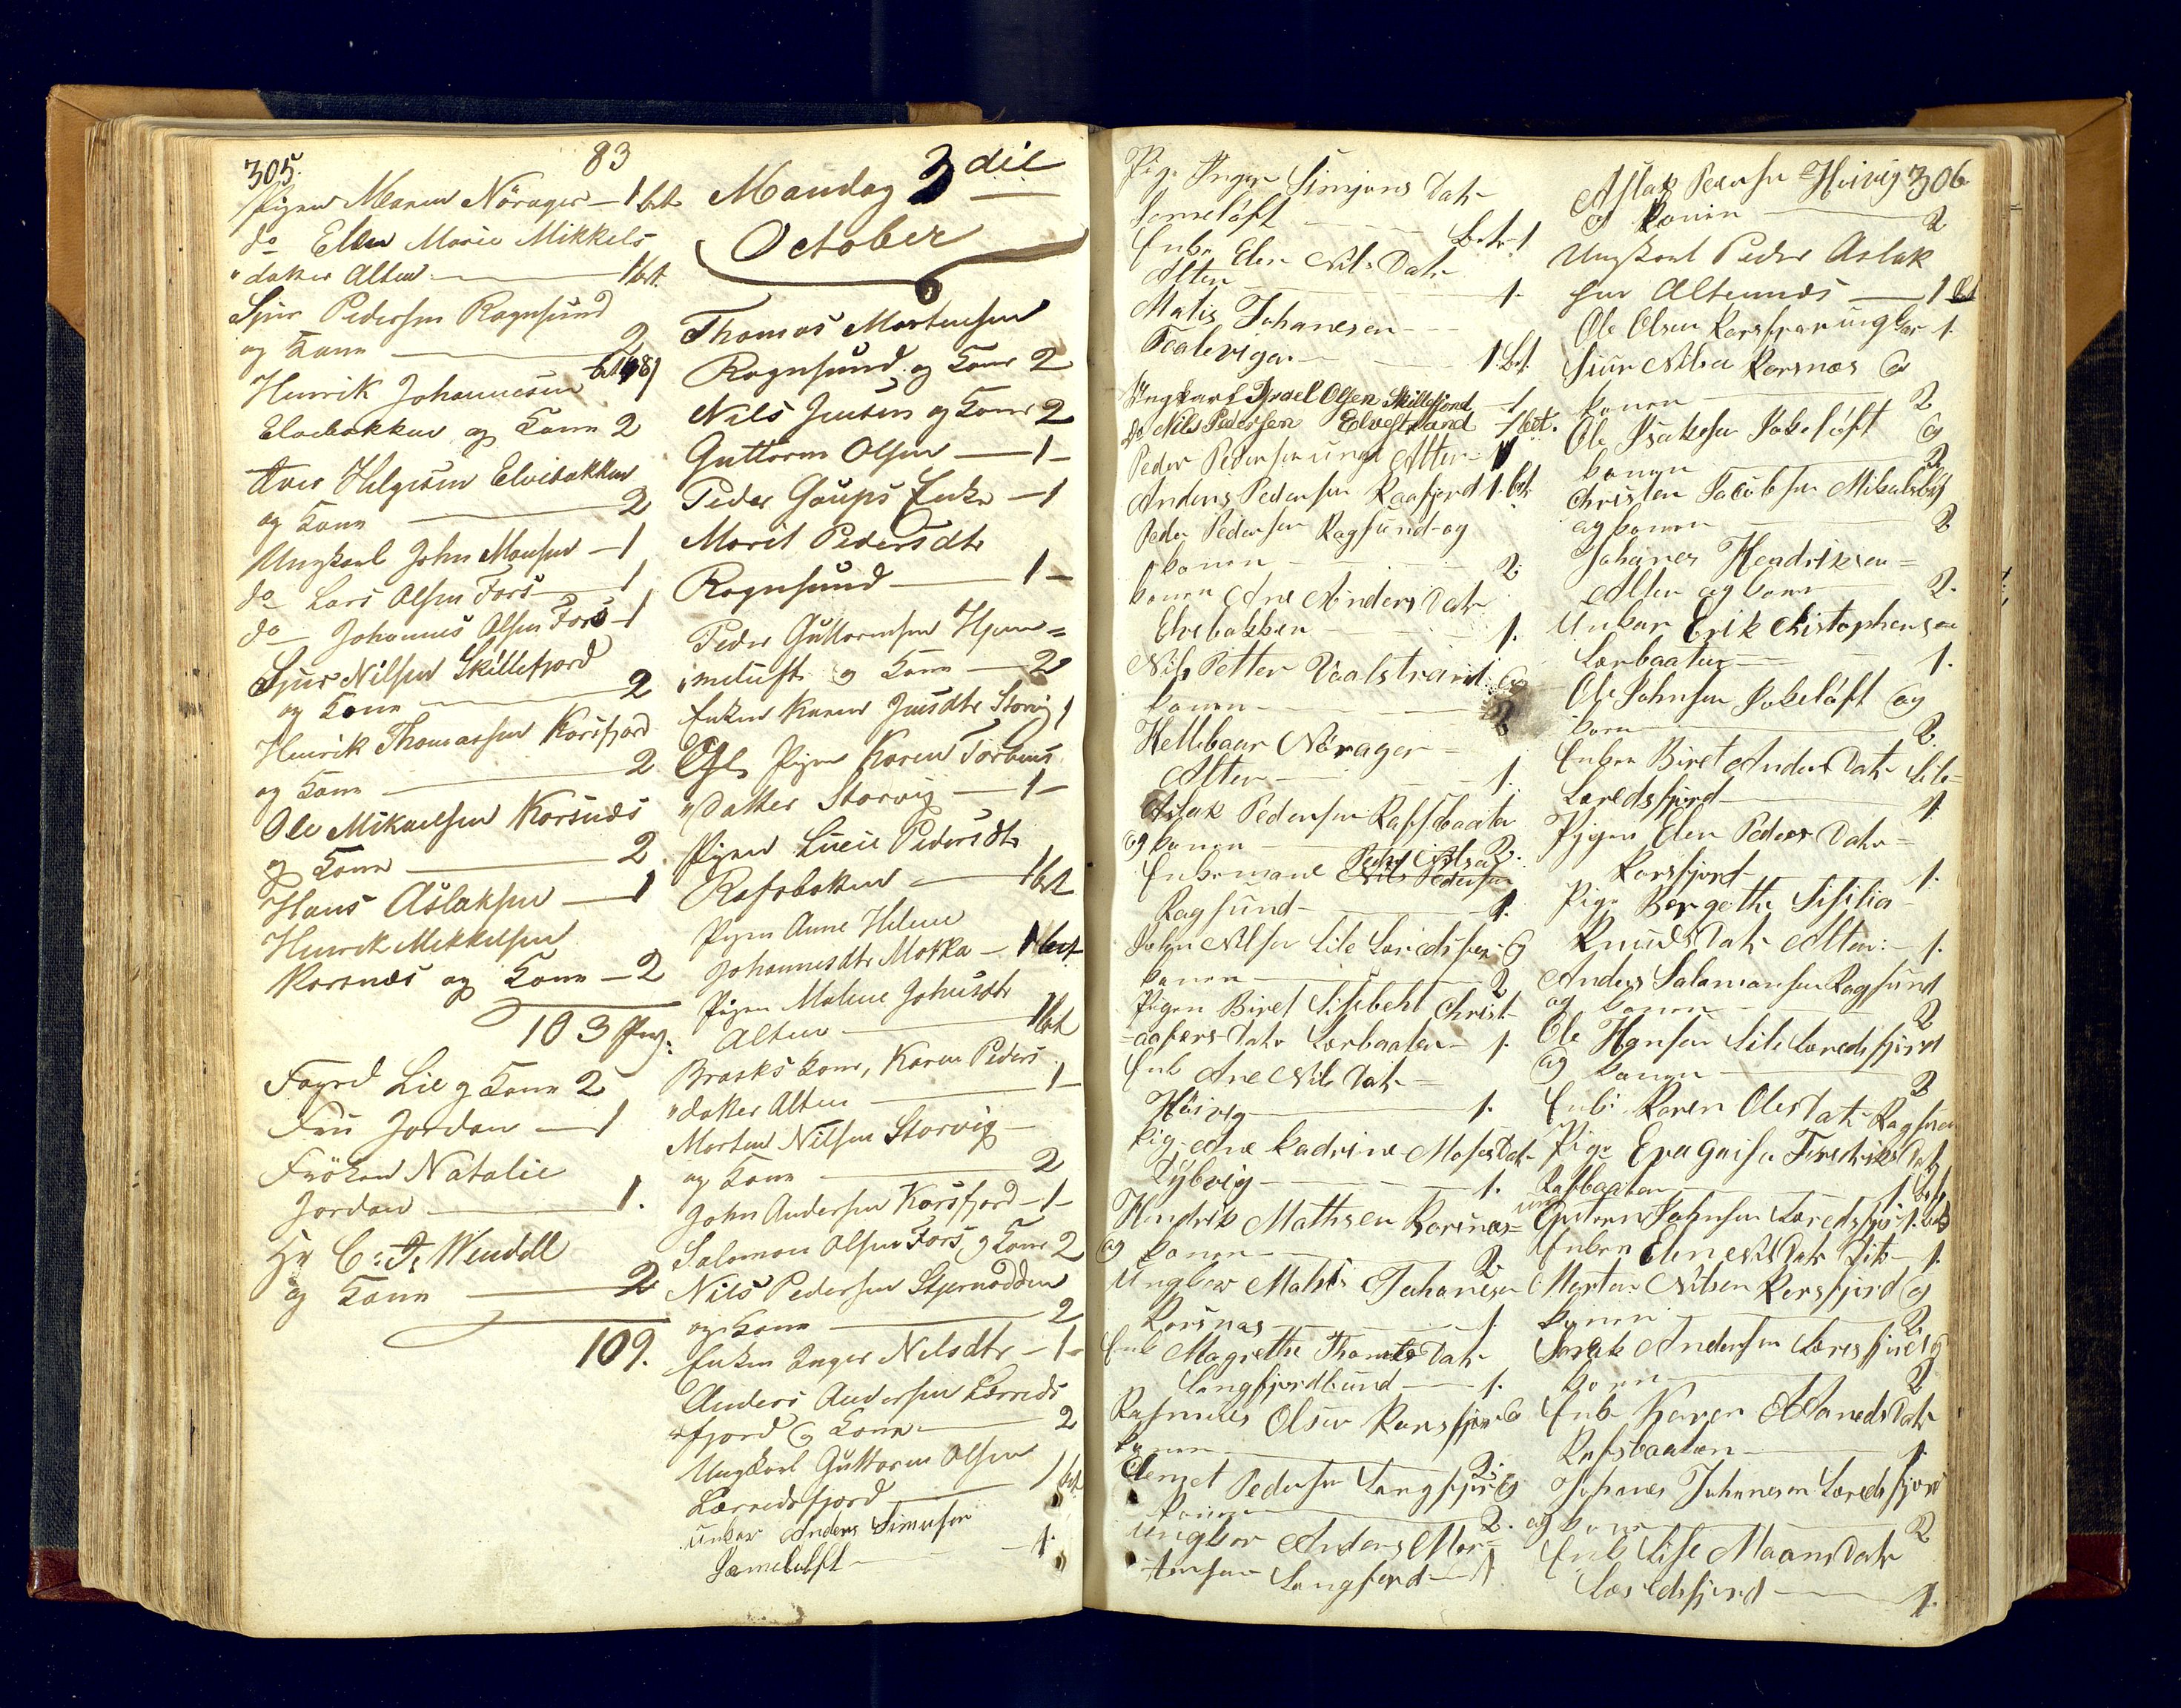 305.
83
Pigen Maren Nörager — 1 bet
do Ellen Marie Mikkels
"datter Alten — 1 bet.
Sjur Pedersen Rognsund
og Kone — 2
Henrik Johannesen
Elvebakken og Kone 2
Iver Helgesen Elvebakken
og Kone — 2
Ungkarl John Monsen — 1
do Lars Olsen Fors — 1
do Johannes Olsen Fors — 1
Sjur Nilsen Skillefjord
og Kone — 2
Henrik Thomassen Korsfjord
og Kone — 2
Ole Mikaelsen Korsnæs
og Kone — 2.
Hans Aslaksen — 1
Henrik Mikkelsen
Korsnæs og Kone — 2
103
Foged Lie og Kone 2
Fru Jordan — 1
Fröken Natalie
Jordan — 1.
Hr C: Wendell
og Kone — 2
109.
Mandag 3die
October
Thomas Mortensen
Rognsund og Kone 2
Nils Jensen og Kone 2
Guttorm Olsen — 1 —
Peder Gaups Enke — 1
Marit Pedersdtr
Rognsund — 1 —
Peder Guttormsen Hjem=
meluft og Kone — 2
Enken Karen Jensdtr Storvig 1
Pigen Karen Torbens
"datter Storvig — 1 —
Pigen Lucie Pedersdtr
Rafsbotten — 1 bet
Pigen Anne Helene
Johannesdtr Mokka — 1 bet
Pigen Malene Johnsdtr
Alten — 1 bet
Brasks Kone, Karen Peders
"datter Alten — 1 —
Morten Nilsen Storvig —
og Kone — 2
John Andersen Korsfjord — 1 —
Salomon Olsen Fors og Kone 2
Nils Pedersen Stjernodden
og Kone — 2
Enken Inger Nilsdtr — 1 —
Anders Andersen Lerreds
"fjord og Kone — 2
Ungkarl Guttorm Olsen
Lerredsfjord — 1 bet
unkar Anders Simensen
Jameluft — 1.
Pige Inger Simjons Datr
Jomeloft — bet. 1
Enke Elen Nils Datr
Alten — 1.
Matis Johanesen
Toalevigen — 1 bet.
Ungkarl Israel Olsen Skillefjord — 1
do Nils Pedersen Elvestrand — 1 bet.
Peder Pedersen ungk Alten — 1
Anders Pedersen Kaafjord 1. bet
Peder Pedersen Ragsund og
konen — 2.
konen Ane Anders Datr
Elvebakken — 1.
Nils Petter Vaalstrand og
konen — 2
Hellebaar Nörager =
Alten — 1.
Aslak Pedersen Rafsbaaten
og konen — 2.
Enkemand Peder Nilsen
Nils Pedersen
Ragsund — 1.
John Nilsen Lile Leredsfjor og
konen — 2
Pigen Biret Lisebeht Christ
=affers Datr Lerbaaten — 1.
Enk Ane Nils Datr =
Höivig — 1.
Pig Ane Kadrine Moses Datr
Lybvig — 1.
Hendrik Mathisen Korsnæs =
og konen — 2.
Ungkar Mahtis Johanesen
Korsnæs — 1
Enk Magrethe Thomes Datr
Langfjordbund — 1.
Rasmus Olsen Korsfjor og
konen — 2.
Clemet Pedersen Langfjor og
konen — 2.
Ungkar Anders Mor=
tensen Langfjord — 1
306
Aslak Pedersen Höivig
og konen — 2
Ungkarl Peder Aslak
sen Alteneids — 1 bet
Ole Olsen Korsfjor ungkar 1.
Siur Nilsen Korsnæs og
konen — 2
Ole Isaksen Jokeloft og
konen — 2
Christen Jacobsen Mikalsby
og konen — 2
Johanes Hendriksen =
Alten og konen — 2.
Unkar Erik Christophersen
Lerbaaten — 1.
Ole Johnsen Jokeloft og
konen — 2
Enken Biret Anders Datr Lile=
Leredsfjord — 1.
Pigen Elen Peders Datr =
Korsfjord — 1.
Pige Bergethe Sisilia
Knuds Datr Alten — 1.
Anders Salamonsen Ragsund
og konen — 2
Ole Hansen Lile Leredsfjord
og konen — 2
Enke Karen Oles Datr Ragsund
Pige Eva Gaisa Fredriks Datr
Rafsbaaten — 1. bet
Gutorm Johnsen Leredsfjor 1. bet
Enken Elen Nils Datr — 1.
Morten Nilsen Korsfjord og
konen — 2.
Isak Andersen Leredsfjord og
konen — 2
Enk Karen Amunds Datr
Rafsbaaten — 1.
Johanes Johanesen Leredsfjord
og konen — 2
Enk Lise Maans Datr
Leredsfjord — 1.